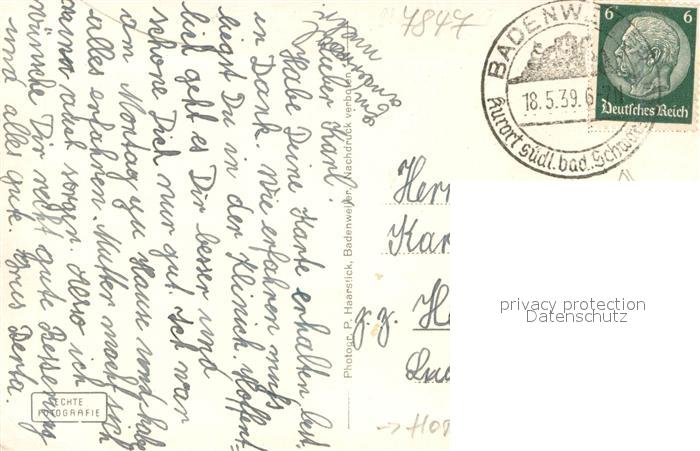 Lieber Karl!
Habe Deine Karte erhalten best.
in Dank. Wie erfahren muß
liegst Du in der Klinick. Hoffent=
lich geht es Dir besser und
schone Dich nur gut. Ich war
am Montag zu Hause und habe
alles erfahren. Mutter macht sich
sorgen. Also ich
wünsche Dir recht gute Besserung
und alles gute. Grus Berta.
ECHTE
FOTOGRAFIE
Photogr. P. Haarstick, Badenweiler. Nachdruck verboten
4847
BADENWE
18.5.39.6
Kurort südl. bad. Schwarz
6 6
Deutsches Reich
Herr
Kar
z. Zt. H
privacy protection
Datenschutz